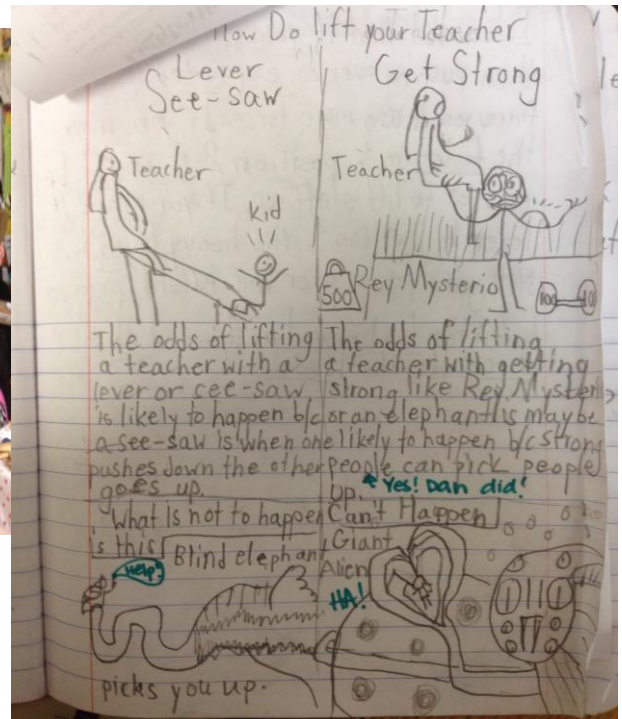 How Do lift your Teacher
Lever
See-saw
Teacher
kid
The odds of lifting
a teacher with a
lever or see-saw
is likely to happen b/c
a see-saw is when one
pushes down the other
goes up.
What Is not to happen
is this
Blind elephant
Help!
picks you up.
Get Strong
Teacher
500
Rey Mysterio
100
The odds of lifting
a teacher with getting
strong like Rey Mysterio
or an elephant is maybe
likely to happen b/c strong
people can pick people
up.
Yes! Dan did!
Can't Happen
Giant
Alien
HA!